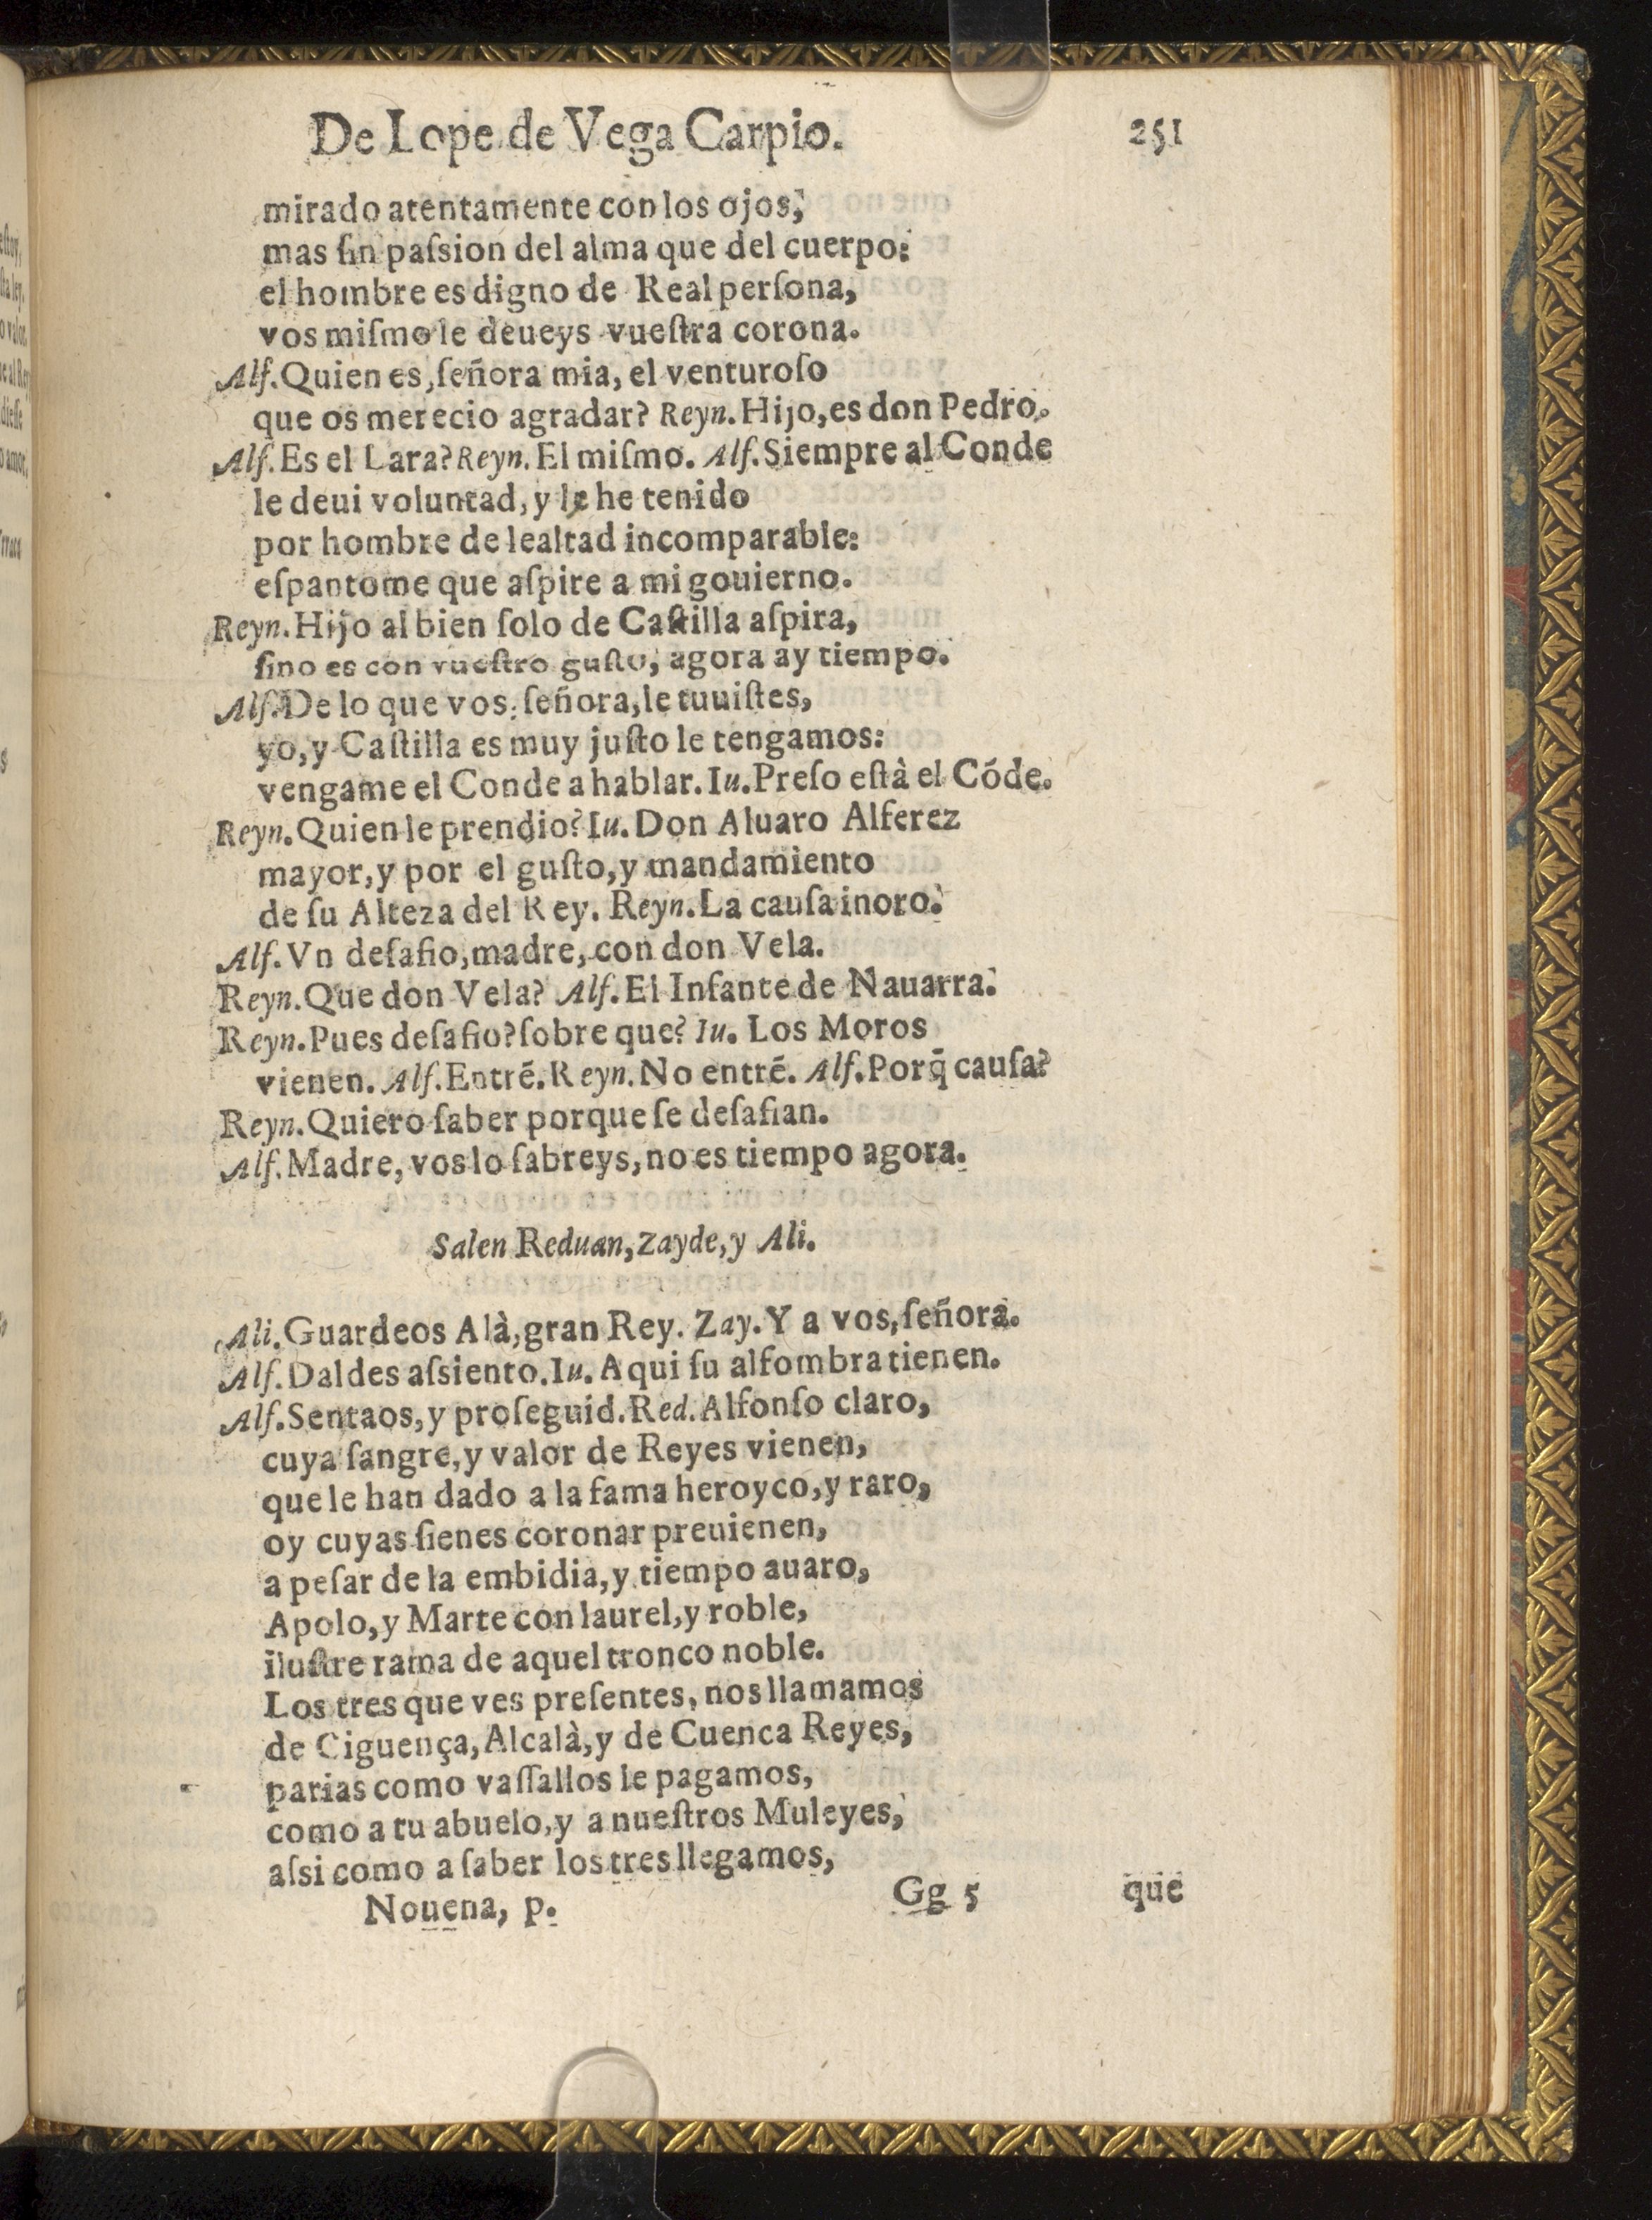 De Lope de Vega Carpio. 251
mirado atentamente con los ojos,
mas ſin paſsion del alma que del cuerpo:
el hombre es digno de Real perſona,
vos miſmo le deueys vueſtra corona.
Alf. Quien es, ſeñora mia, el venturoſo
que os merecio agradar? Reyn. Hijo, es don Pedro.
Alf. Es el Lara? Reyn. El miſmo. Alf. Siempre al Conde
le deui voluntad, y le he tenido
por hombre de lealtad incomparable:
eſpantome que aſpire a mi gouierno.
Reyn. Hijo al bien ſolo de Caſtilla aſpira,
ſino es con vueſtro guſto, agora ay tiempo.
Alf. De lo que vos, ſeñora, le tuuiſtes,
yo, y Caſtilla es muy juſto le tengamos:
vengame el Conde a hablar. Iu. Preſo eſtà el Códe.
Reyn. Quien le prendio? Iu. Don Aluaro Alferez
mayor, y por el guſto, y mandamiento
de ſu Alteza del Rey. Reyn. La cauſa inoro.
Alf. Vn deſafio, madre, con don Vela.
Reyn. Que don Vela? Alf. El Infante de Nauarra.
Reyn. Pues deſafio? ſobre que? Iu. Los Moros
vienen. Alf. Entrē. Reyn. No entrē. Alf. Porq̄ cauſa?
Reyn. Quiero ſaber porque ſe deſafian.
Alf. Madre, vos lo ſabreys, no es tiempo agora.
Salen Reduan, Zayde, y Ali.
Ali. Guardeos Alà, gran Rey. Zay. Y a vos, ſeñora.
Alf. Daldes aſsiento. Iu. Aqui ſu alfombra tienen.
Alf. Sentaos, y proſeguid. Red. Alfonſo claro,
cuya ſangre, y valor de Reyes vienen,
que le han dado a la fama heroyco, y raro,
oy cuyas ſienes coronar preuienen,
a peſar de la embidia, y tiempo auaro,
Apolo, y Marte con laurel, y roble,
iluſtre rama de aquel tronco noble.
Los tres que ves preſentes, nos llamamos
de Ciguença, Alcalà, y de Cuenca Reyes,
parias como vaſſallos le pagamos,
como a tu abuelo, y a nueſtros Muleyes,
aſsi como a ſaber los tres llegamos,
Nouena, p. Gg 5 que